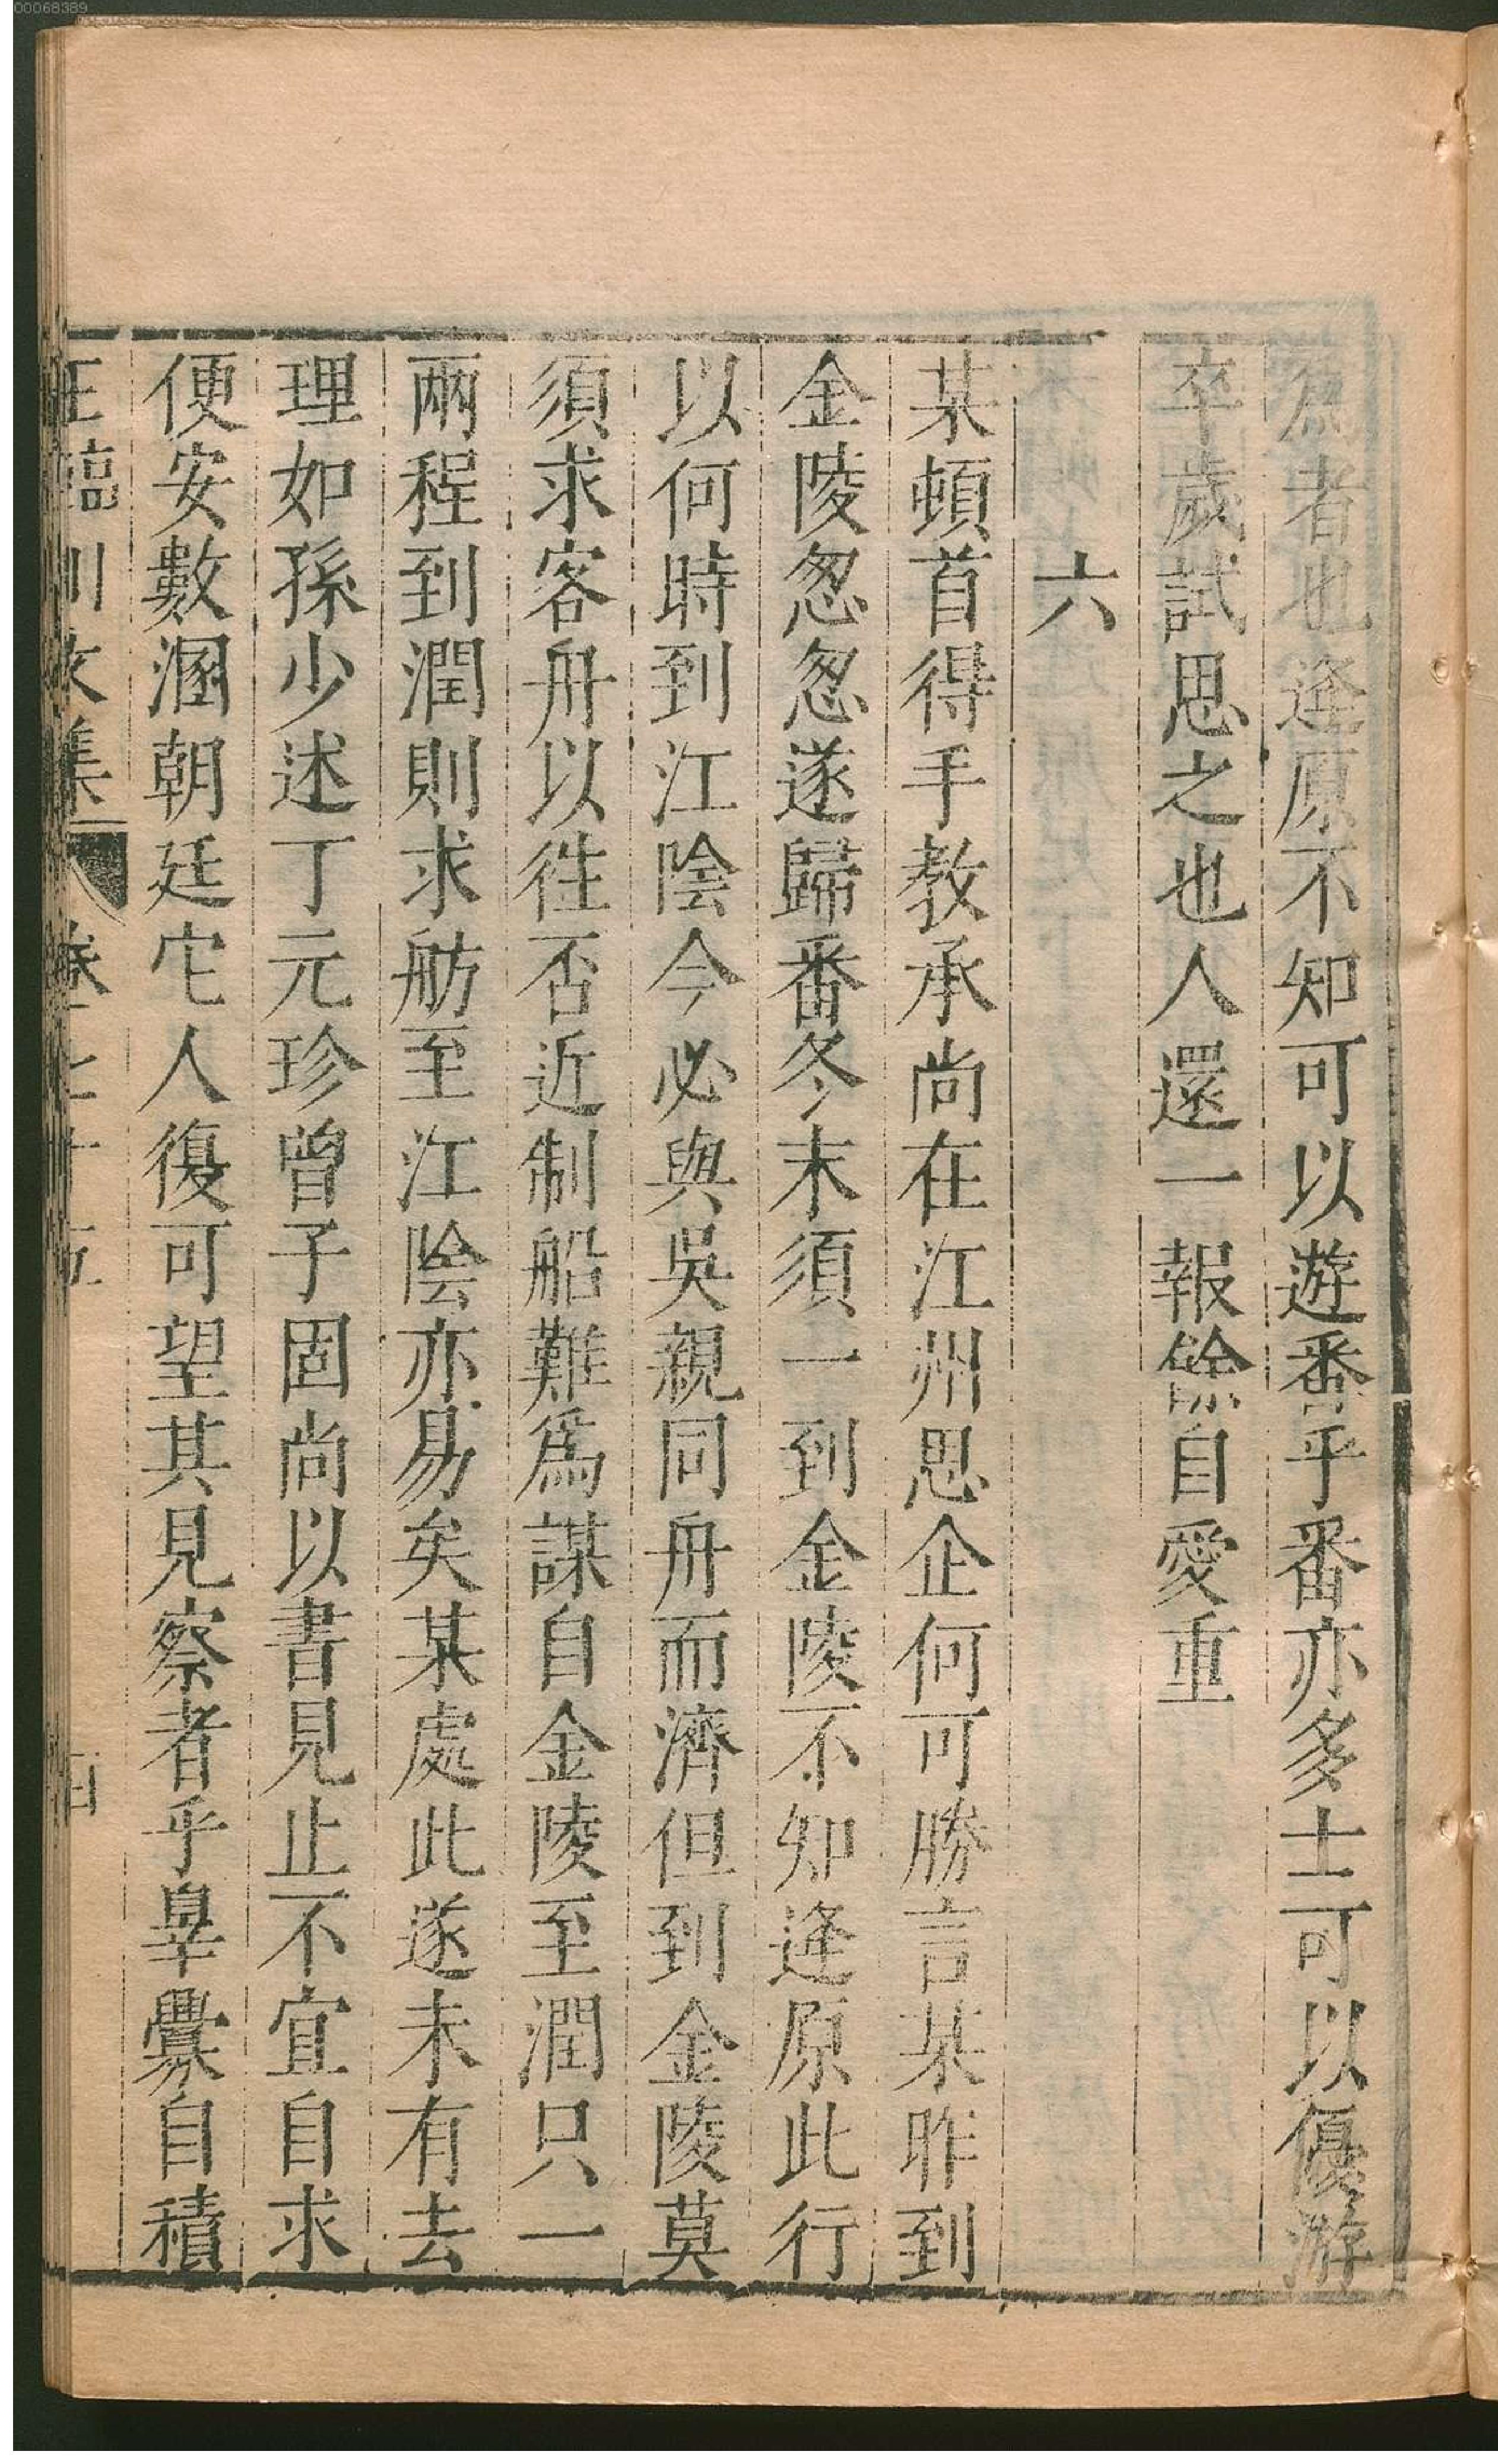 為者也逢原不知可以遊番乎番亦多士可以優游
卒歲試思之也人還一報餘自愛重
六
某頓首得手教承尚在江州思企何可勝言某昨到
金陵怱怱遂歸番冬末須一到金陵不知逢原此行
以何時到江陰今必與吳親同舟而濟但到金陵莫
須求客舟以徃否近制船難爲謀自金陵至潤只一
兩程到潤則求舫至江陰亦易矣某處此遂未有去
理如孫少述丁元珍曾子固尚以書見止不宜自求
便安數溷朝廷它人復可望其見察者乎辠釁自積
王臨川文集 卷七十五
00068389